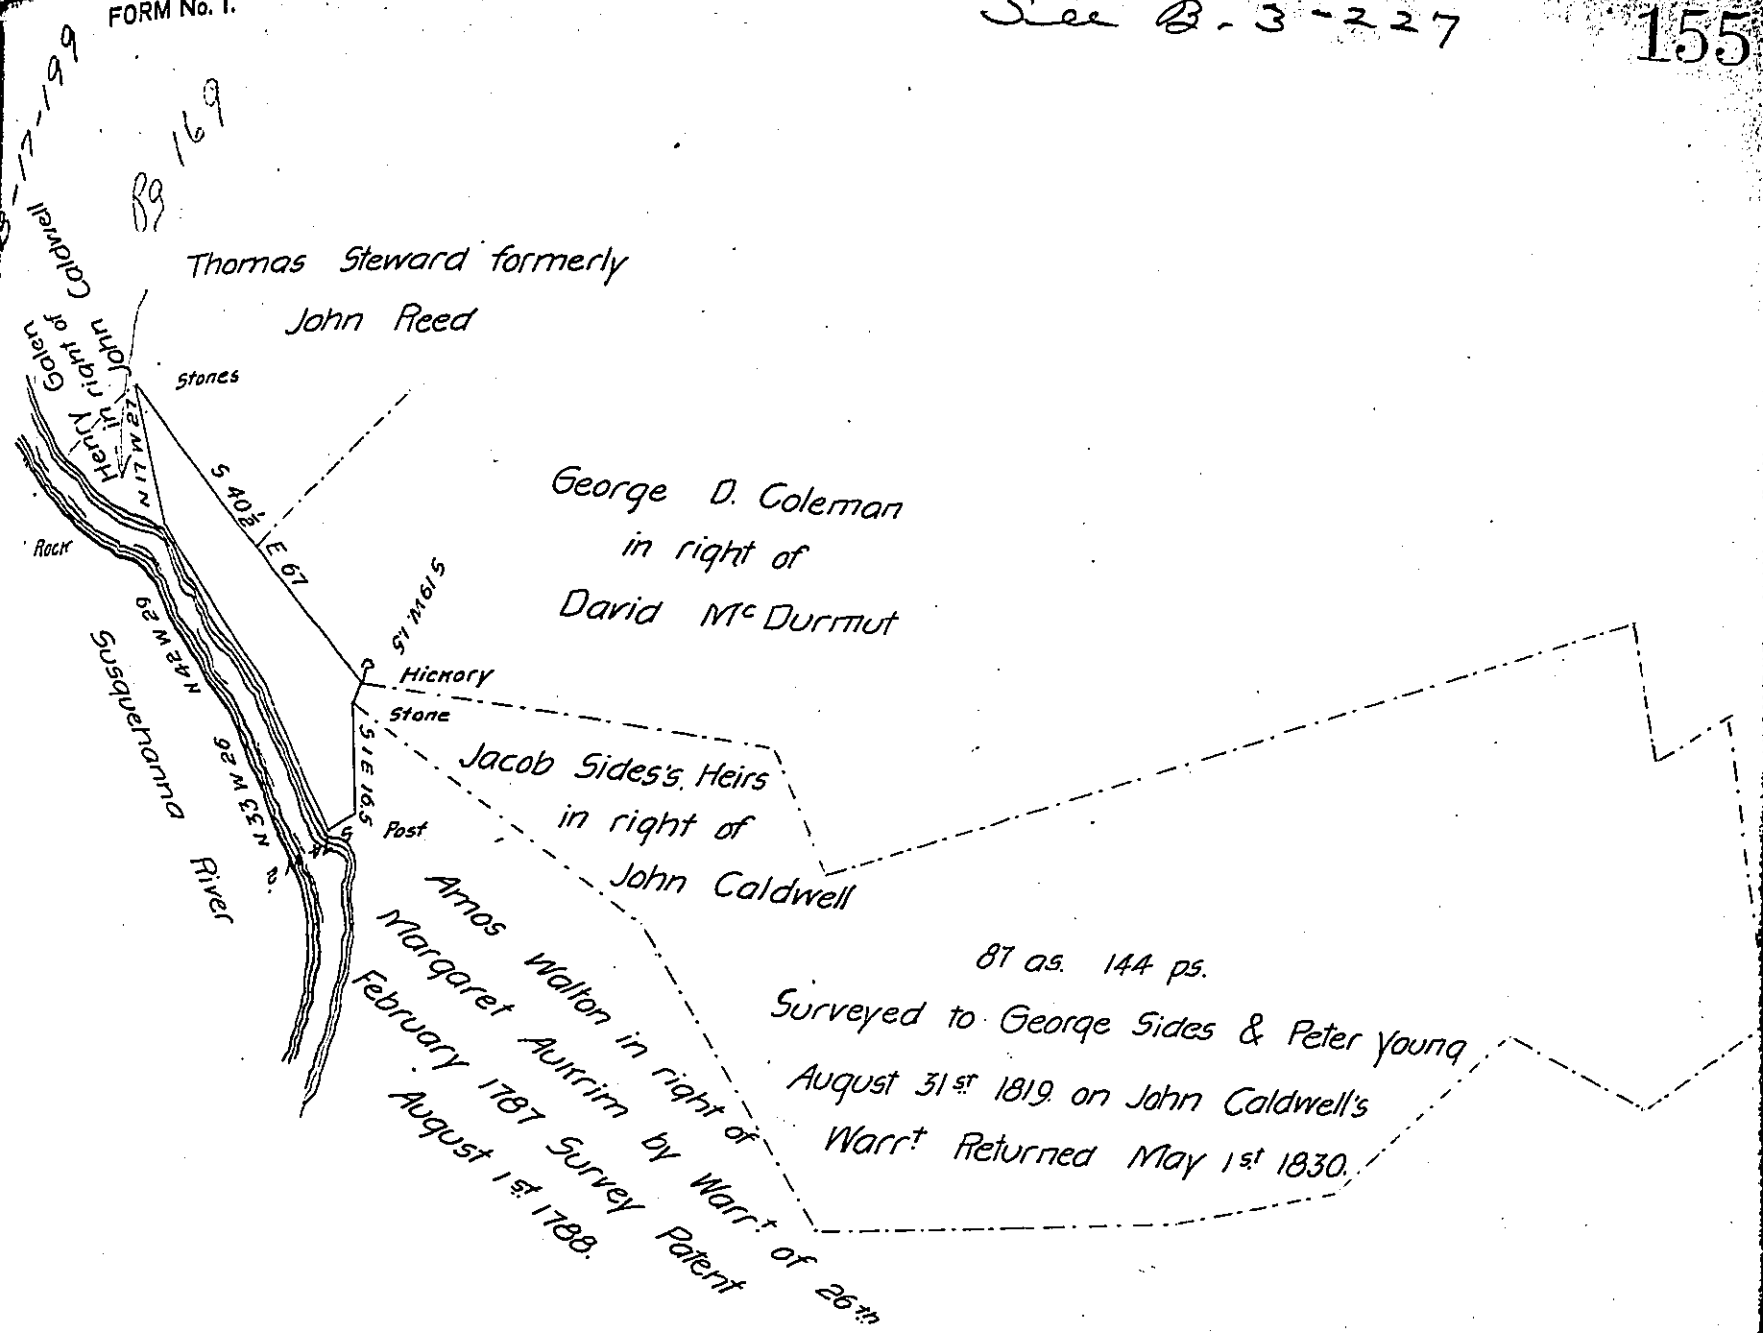 FORM No. 1.
See B-3-227
155
-17-199
Pg 169
Thomas Steward formerly
John Reed
Henry Galen
in right of
John Caldwell
Stones
N 17 W 27
S 40½ E 67
Rock
George D. Coleman
in right of
David Mc Durmut
S 19 W. 1.5
Hickory
Stone
S 1 E 16.5
Post
N 42 W 29
N 33 W 26
Susquehanna River
Jacob Sides's Heirs
in right of
John Caldwell
Amos Walton in right of
Margaret Aurrim by Warrt of 26th
February 1787 Survey Patent
August 1st 1788.
87 as. 144 ps.
Surveyed to George Sides & Peter Young
August 31st 1819 on John Caldwell's
Warrt Returned May 1st 1830.